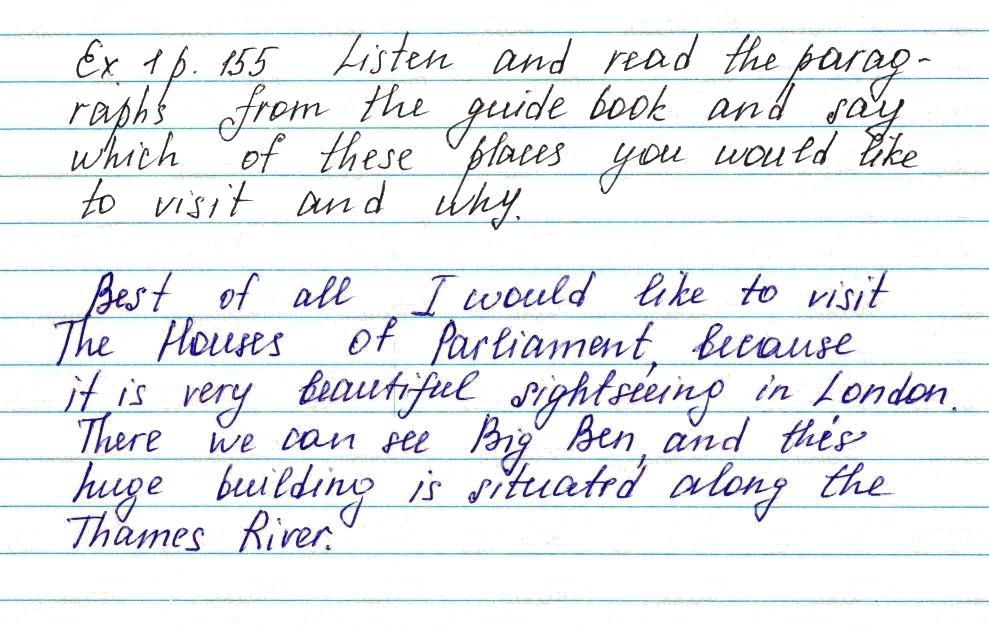 Ex 1 p. 155 Listen and read the parag-
raphs from the guide book and say
which of these places you would like
to visit and why.
Best of all I would like to visit
The Houses of Parliament, because
it is very beautiful sightseeing in London.
There we can see Big Ben, and this
huge building is situated along the
Thames River.